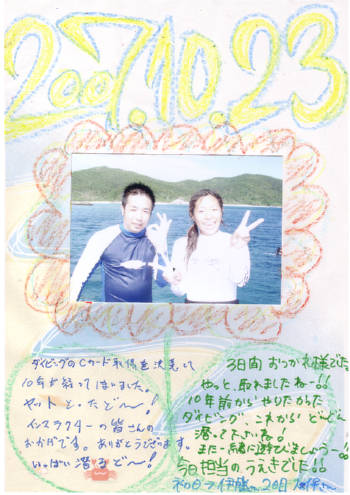 2007.10.23
ダイビングのCカード取得を決意して
10年が経ってしまいました。
ヤットとったど～!
インストラクターの皆さんの
おかげです。ありがとうございます。
いっぱい潜るど～!
3日間おつかれ様でした
やっと、取れましたねー!!
10年前からやりたかった
ダイビング、これからどんどん
潜って下さいね!
また一緒に遊びましょうー!!
今日担当のうえきでした!!